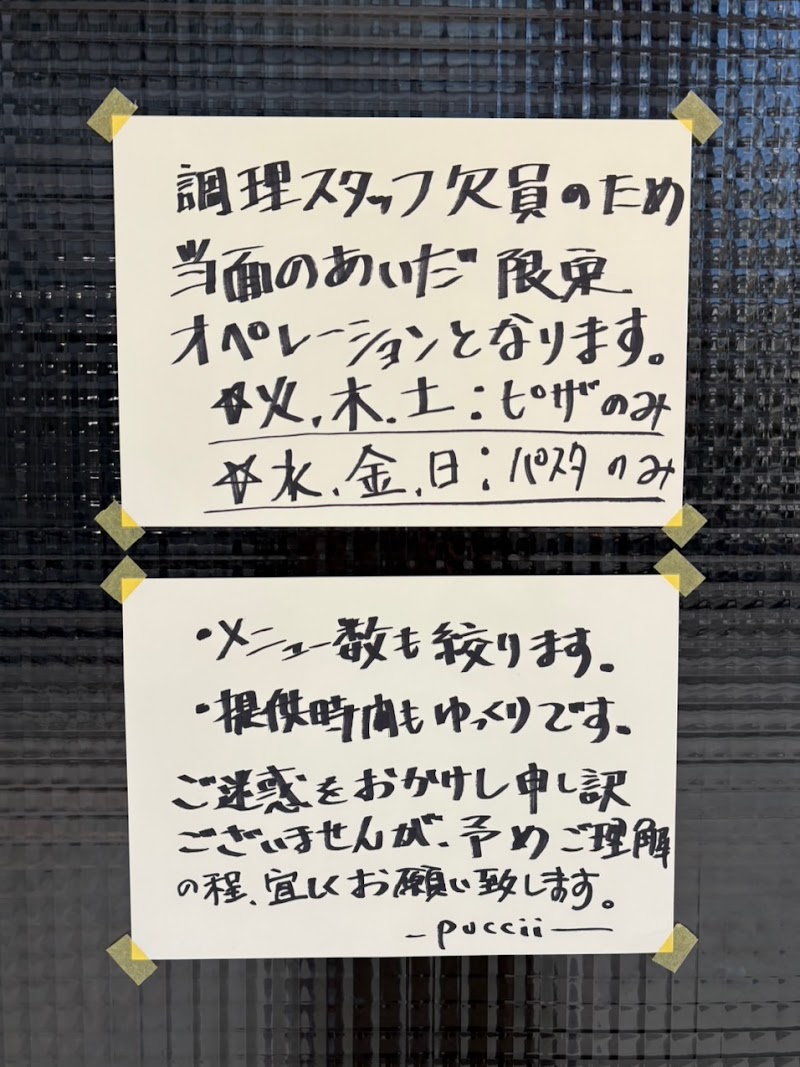 調理スタッフ欠員のため
当面のあいだ 限定
オペレーションとなります。
☆火、木、土：ピザのみ
☆水、金、日：パスタのみ
・メニュー数も絞ります。
・提供時間もゆっくりです。
ご迷惑をおかけし申し訳
ございませんが、予めご理解
の程、宜しくお願い致します。
-puccii-